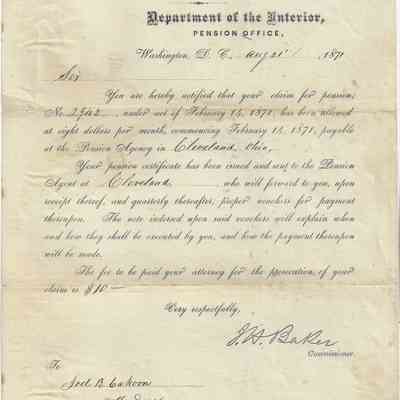 Department of the Interior,
PENSION OFFICE,
Washington, D. C. Aug 21 1871
Sir
You are hereby notified that your claim for pension,
No. 2,942 under act of February 14, 1871, has been allowed
at eight dollars per month, commencing February 14, 1871, payable
at the Pension Agency in Cleveland, Ohio,
Your pension certificate has been issued and sent to the Pension
Agent at Cleveland, who will forward to you, upon
receipt thereof, and quarterly thereafter, proper vouchers for payment
thereupon. The note indorsed upon said vouchers will explain when
and how they shall be executed by you, and how the payment thereupon
will be made.
The fee to be paid your attorney for the prosecution of your
claim is $10—
Very respectfully,
J. H. Baker
Commissioner.
To
Joel B. Cahoon